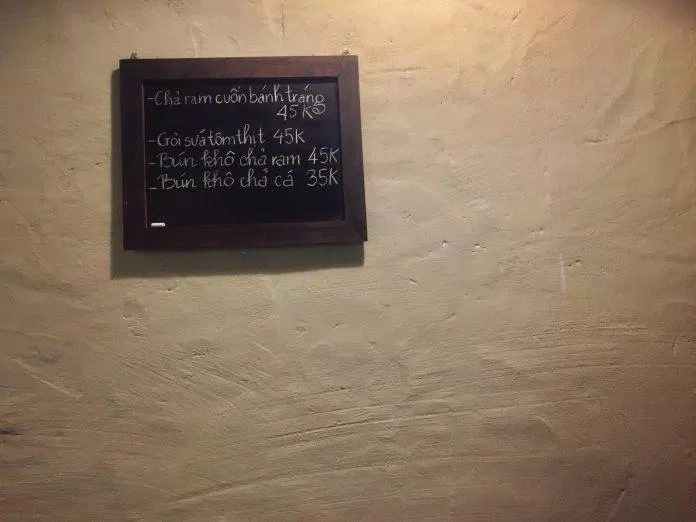 -Chả ram cuốn bánh tráng
45K
-Gỏi sứa tôm thịt 45K
-Bún khô chả ram 45K
-Bún khô chả cá 35K